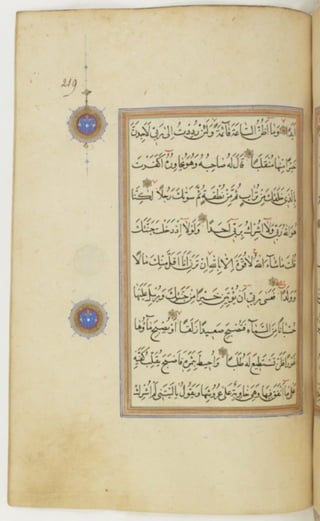 219
أَبَدًا وَمَا أَظُنُّ السَّاعَةَ قَائِمَةً وَلَئِنْ رُدِدْتُ إِلَى رَبِّي لَأَجِدَنَّ
خَيْرًا مِنْهَا مُنْقَلَبًا قَالَ لَهُ صَاحِبُهُ وَهُوَ يُحَاوِرُهُ أَكَفَرْتَ
بِالَّذِي خَلَقَكَ مِنْ تُرَابٍ ثُمَّ مِنْ نُطْفَةٍ ثُمَّ سَوَّاكَ رَجُلًا لَكِنَّا
هُوَ اللَّهُ رَبِّي وَلَا أُشْرِكُ بِرَبِّي أَحَدًا وَلَوْلَا إِذْ دَخَلْتَ جَنَّتَكَ
قُلْتَ مَا شَاءَ اللَّهُ لَا قُوَّةَ إِلَّا بِاللَّهِ إِنْ تَرَنِ أَنَا أَقَلَّ مِنْكَ مَالًا
وَوَلَدًا فَعَسَى رَبِّي أَنْ يُؤْتِيَنِ خَيْرًا مِنْ جَنَّتِكَ وَيُرْسِلَ عَلَيْهَا
حُسْبَانًا مِنَ السَّمَاءِ فَتُصْبِحَ صَعِيدًا زَلَقًا أَوْ يُصْبِحَ مَاؤُهَا
غَوْرًا فَلَنْ تَسْتَطِيعَ لَهُ طَلَبًا وَأُحِيطَ بِثَمَرِهِ فَأَصْبَحَ يُقَلِّبُ كَفَّيْهِ
عَلَى مَا أَنْفَقَ فِيهَا وَهِيَ خَاوِيَةٌ عَلَى عُرُوشِهَا وَيَقُولُ يَا لَيْتَنِي لَمْ أُشْرِكْ